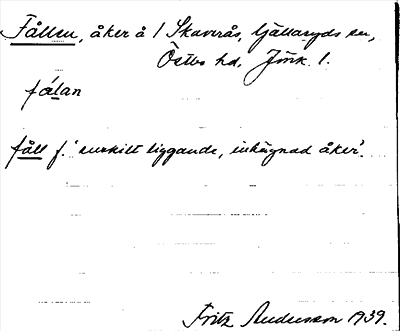 Fållen, åker å 1 Skaverås, Hjälmseryds sn,
Östbo hd, Jönk. l.
fålan
fåll f. 'enskilt liggande, inhägnad åker'.
Fritz Andersson 1939.